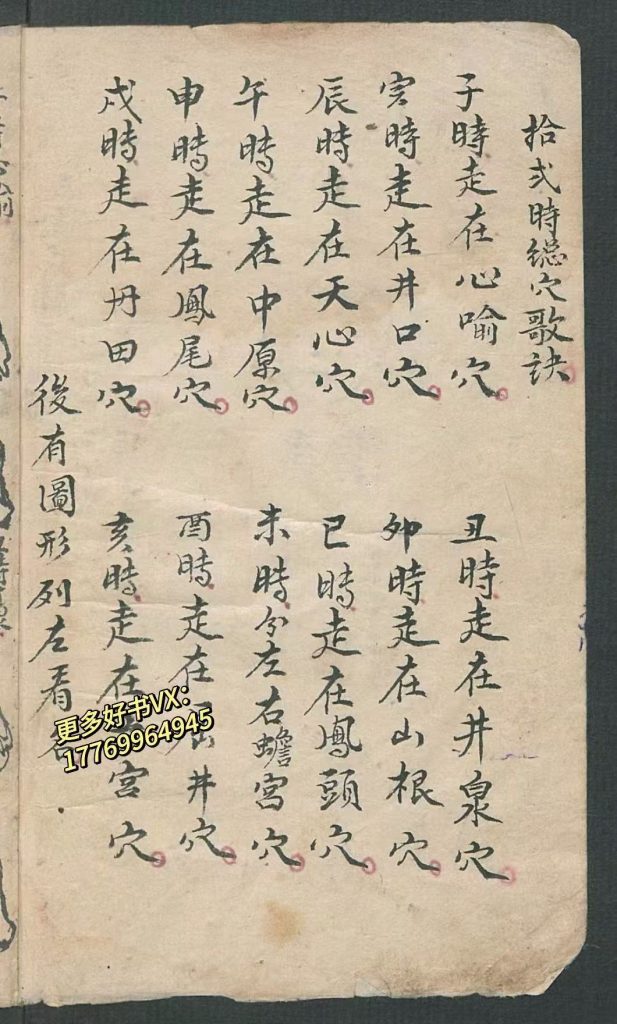 拾弍時總穴歌訣
子時走在心喻穴
丑時走在井泉穴
寅時走在井口穴
卯時走在山根穴
辰時走在天心穴
巳時走在鳳頭穴
午時走在中原穴
未時分左右蟾宮穴
申時走在鳳尾穴
酉時走在 井穴
戌時走在丹田穴
亥時走在 宮穴
後有圖形列左看
更多好书VX:
17769964945